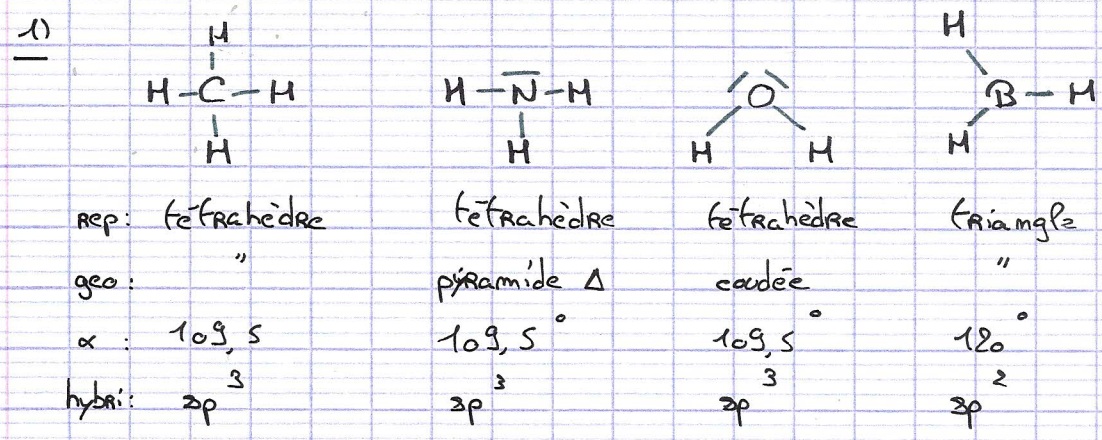 1)
H H
H-C-H H-N-H O B-H
H H H H H
Rep: tétrahèdre tétrahèdre tétrahèdre triangle
geo: " pyramide Δ coudée "
α : 109,5 109,5° 109,5° 120°
hybri: sp³ sp³ sp³ sp²